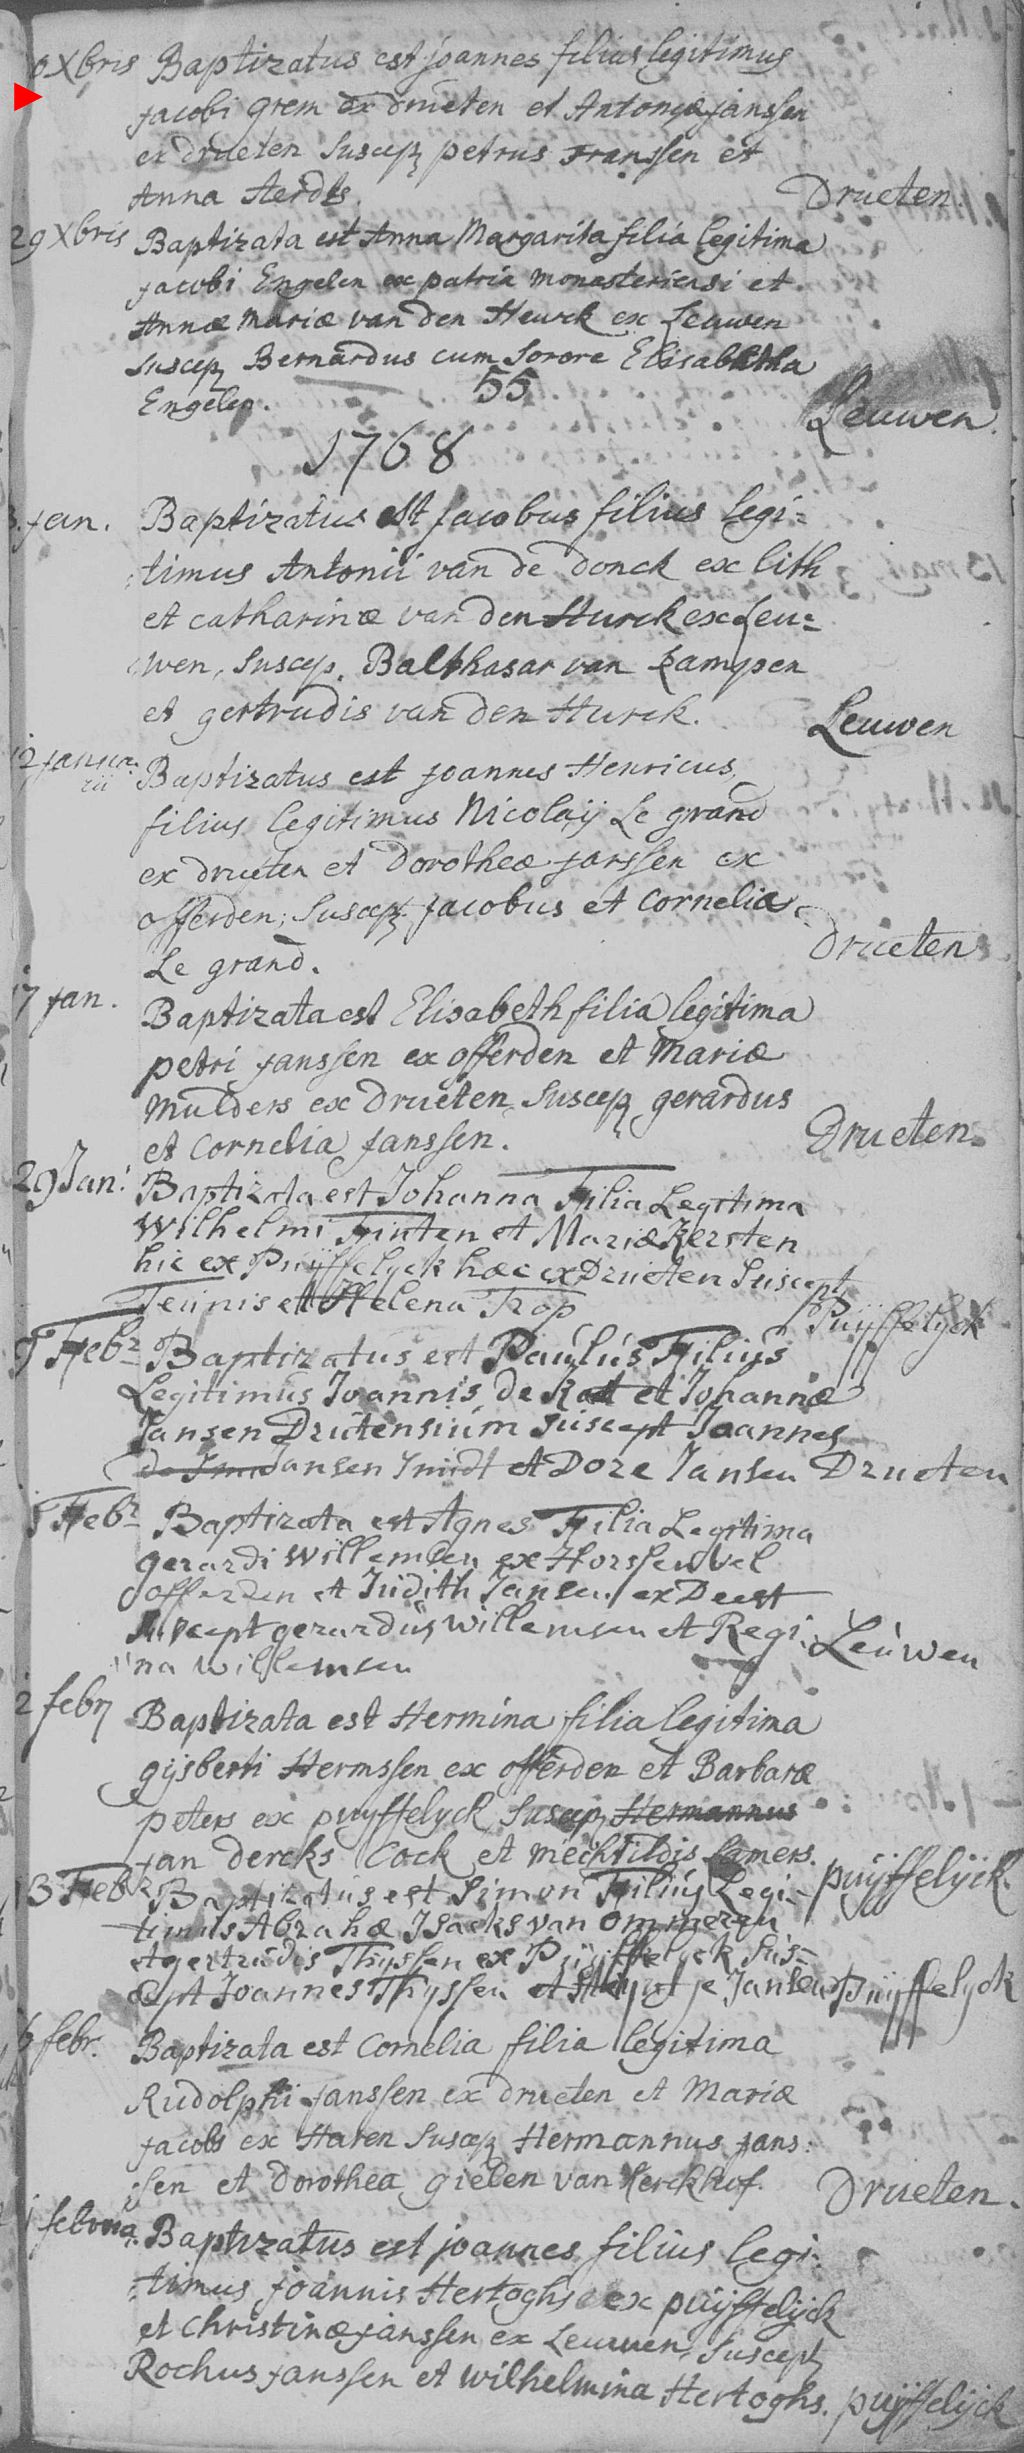 0 Xbris Baptizatus est joannes filius legitimus
jacobi grem ex drueten et Antoniæ janssen
ex drueten Suscep petrus franssen et
Anna Aerdts. Drueten.
29 Xbris Baptizata est Anna Margarita filia legitima
jacobi Engelen ex patria monasteriensi et
Annæ Mariæ van den Heurck ex Leuwen
suscep Bernardus cum sorore Elisabetha
Engelen. 55 Leuwen.
1768
jan. Baptizatus est jacobus filius legi=
timus Antonii van de donck ex lith
et catharinæ van den Hurck ex Leu=
wen, Suscep. Balthasar van kampen
et gertrudis van den Hurck. Leuwen
12 janua:
rii Baptizatus est joannes Henricus
filius legitimus Nicolaij Le grand
ex drueten et dorotheæ janssen ex
offerden; Suscep jacobus et Cornelia
Le grand. Drueten
17 jan. Baptizata est Elisabeth filia legitima
petri janssen ex offerden et Mariæ
Mulders ex Drueten Suscep gerardus
et Cornelia janssen. Drueten.
29 Jan: Baptizata est Johanna Filia Legitima
Wilhelmi Finten et Mariæ Kersten
hic ex Puijffelyck hæc ex Drueten Suscept
Teunis et Helena Trop Puijffelyck
9 Febr Baptizatus est Paulus Filius
Legitimus Joannis de Kat et Johannæ
Jansen Drutensium suscept Joannes
Jansen Smidt et Dore Jansen Drueten
Febr Baptizata est Agnes Filia Legitima
gerardi Willemsen ex Horssen vel
offerden et Judith Jansen ex Deest
suscept gerardus willemsen et Regi= Leuwen
na willemsen
2 febr Baptizata est Hermina filia legitima
gijsberti Hermssen ex offerden et Barbaræ
peters ex puyffelyck Suscep Hermannus
jan dercks Cock et mechtildis Lamers. puijffelijck.
13 Febr Baptizatus est Simon Filius Legi=
timus Abrahæ Isacks van ommeren
et gertrudis Thyssen ex Puijffelyck Sus=
cept Joannes Thyssen et Jansen Puijffelyck
6 febr. Baptizata est Cornelia filia legitima
Rudolphi janssen ex drueten et Mariæ
jacobs ex Haren Suscep Hermannus jans:
sen et dorothea gielen van Kerckhof. Drueten.
februa: Baptizatus est joannes filius legi:
timus joannis Hertoghs ex puijffelijck
et Christinæ janssen ex Leuwen, Suscept
Rochus janssen et wilhelmina Hertoghs. puijffelijck